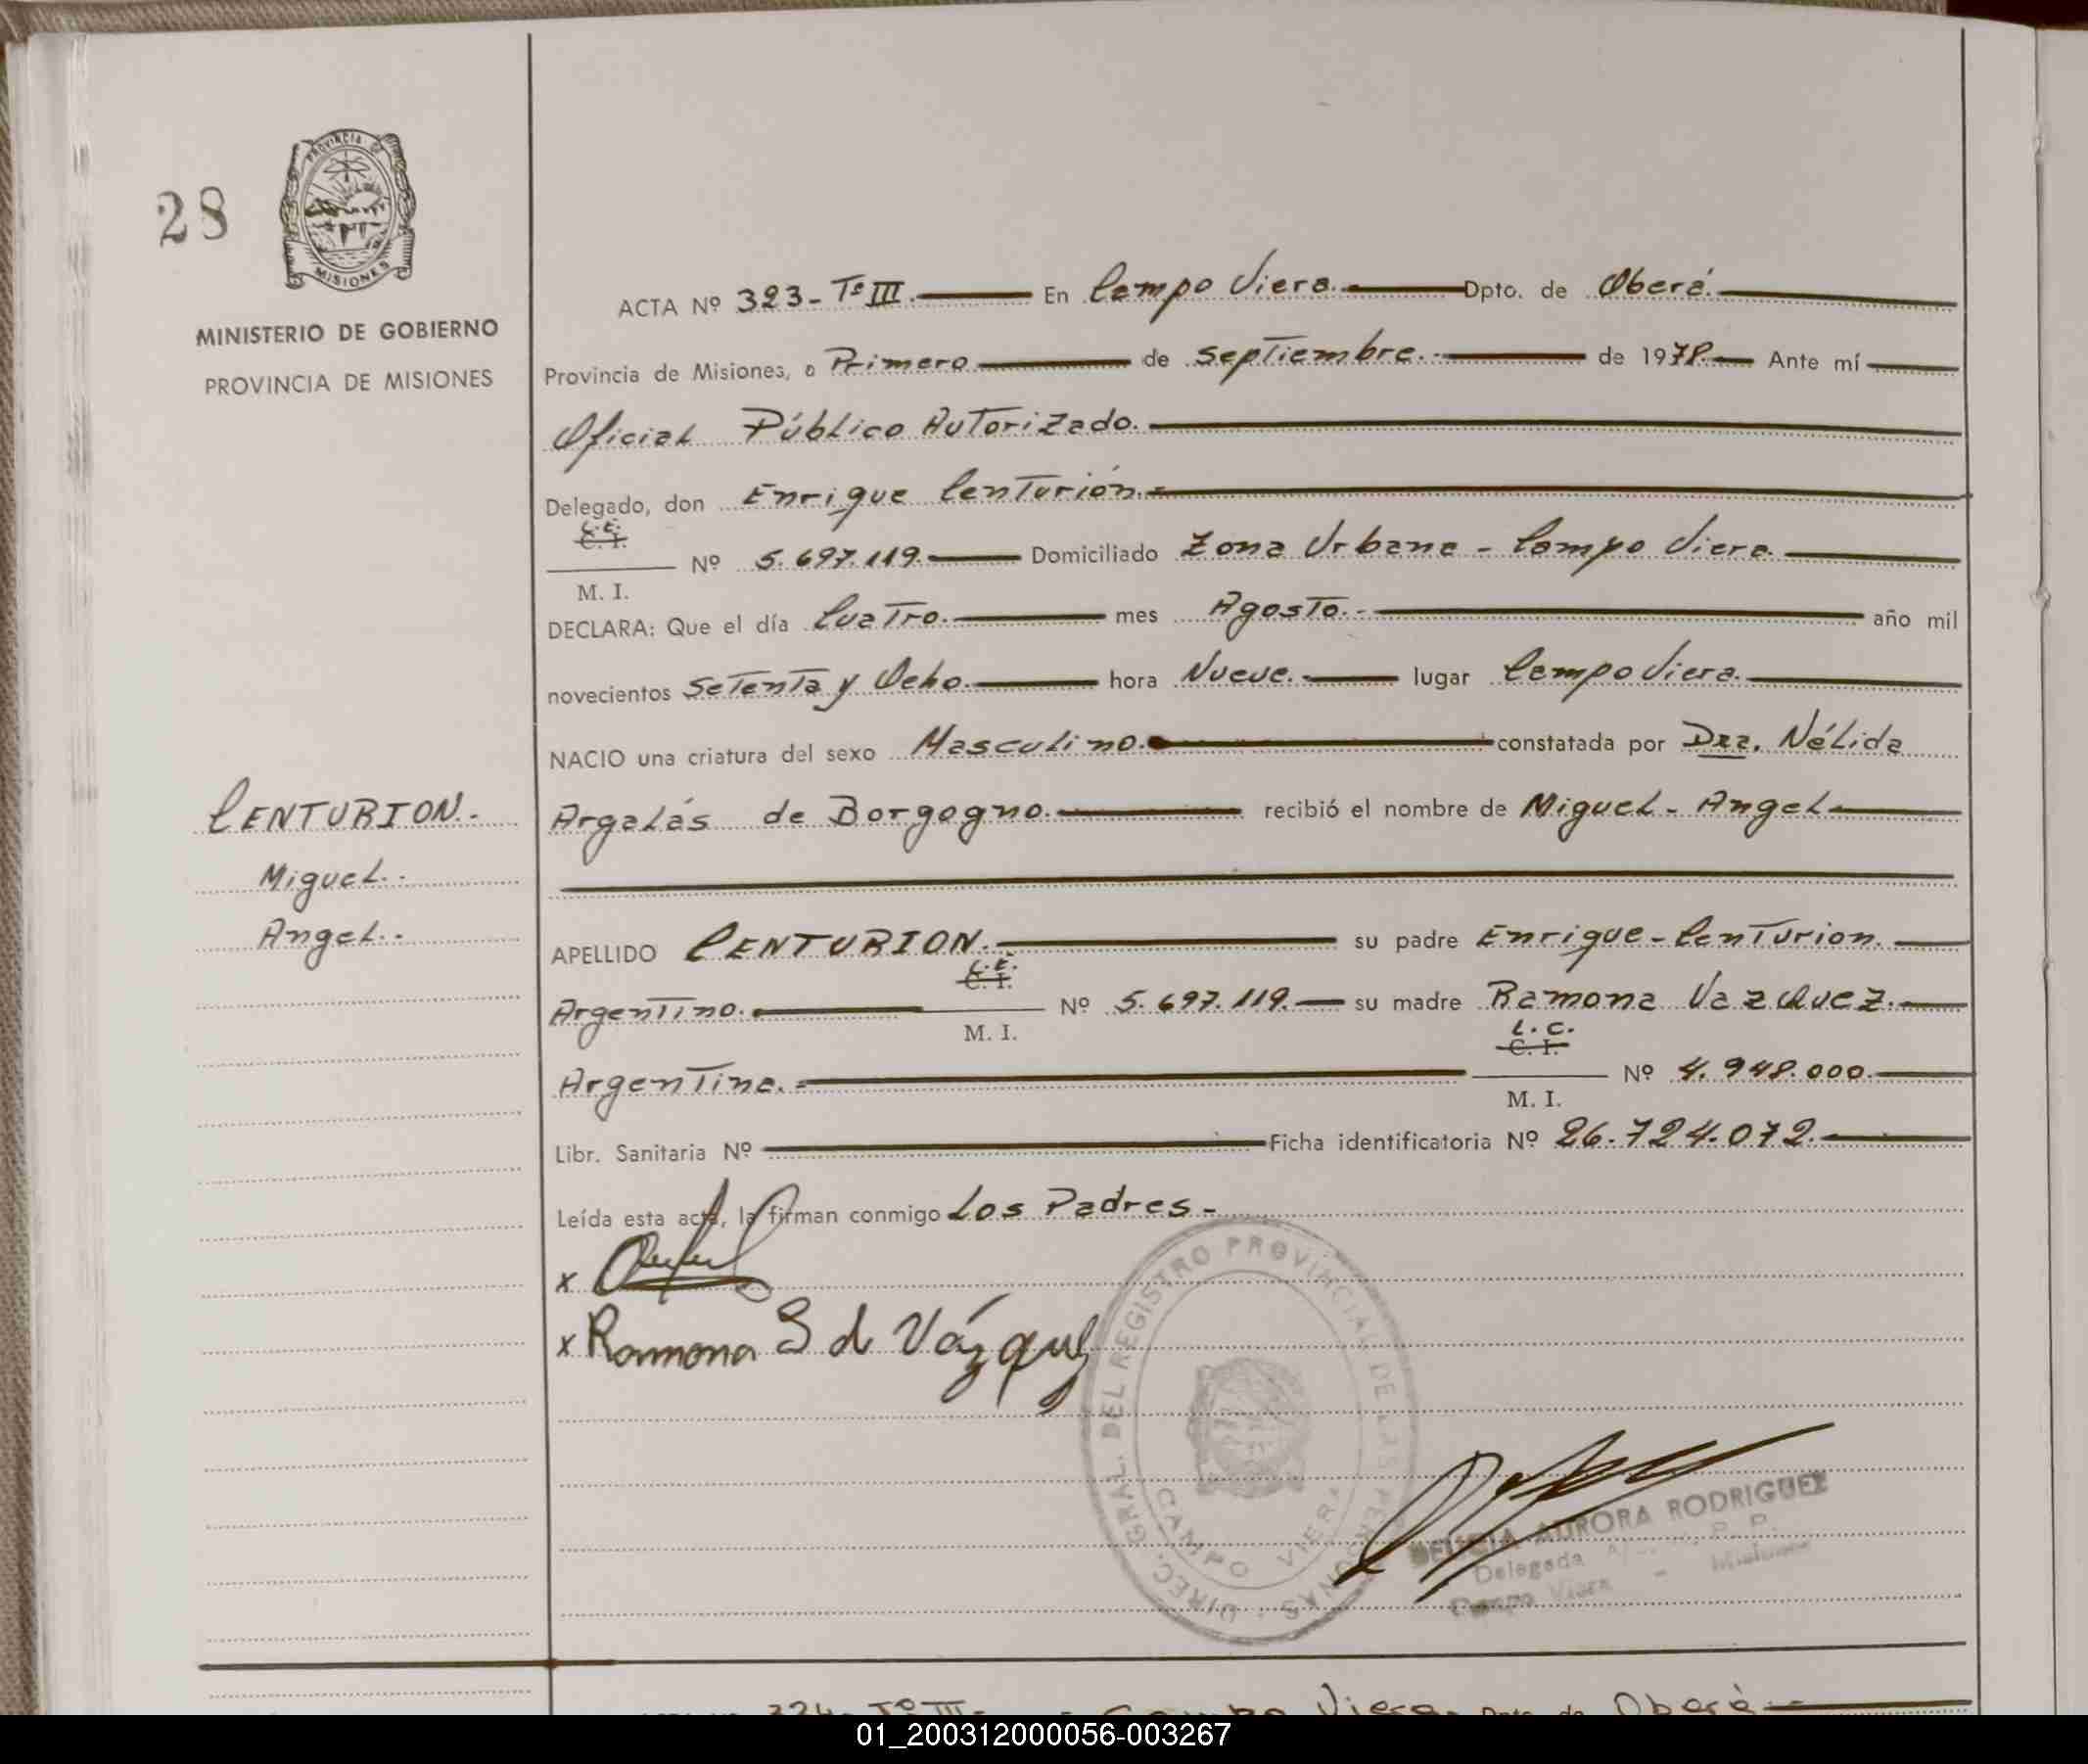 28
PROVINCIA DE
MISIONES
MINISTERIO DE GOBIERNO
PROVINCIA DE MISIONES
CENTURION.-
Miguel.-
Angel.-
ACTA Nº 323-Tº III.— En Campo Viera.— Dpto. de Oberá.—
Provincia de Misiones, a Primero— de septiembre.— de 1978.— Ante mí—
Oficial Público Autorizado.—
Delegado, don Enrique Centurión.=
L.E.
C. I.
Nº 5.697.119.— Domiciliado Zona Urbana - Campo Viera.—
M. I.
DECLARA: Que el día Cuatro.— mes Agosto.— año mil
novecientos Setenta y Ocho.— hora Nueve.— lugar Campo Viera.—
NACIO una criatura del sexo Masculino.— constatada por Dra. Nélida
Argalás de Borgogno.— recibió el nombre de Miguel - Angel—
APELLIDO CENTURION.— su padre Enrique - Centurion.—
L.E.
C. I.
Argentino.— Nº 5.697.119.— su madre Ramona Vazquez.—
M. I.
L.C.
C. I.
Argentina.= Nº 4.948.000.—
M. I.
Libr. Sanitaria Nº — Ficha identificatoria Nº 26.724.072.—
Leída esta acta, la firman conmigo Los Padres-
x
x Ramona S d Vázquez
DIREC. GRAL. DEL REGISTRO PROVINCIAL DE LAS PERSONAS
CAMPO VIERA
AURORA RODRIGUEZ
Delegada R. P.
Campo Viera - Misiones
324-Tº III- Campo Viera- Dpto. de Oberá-
01_200312000056-003267